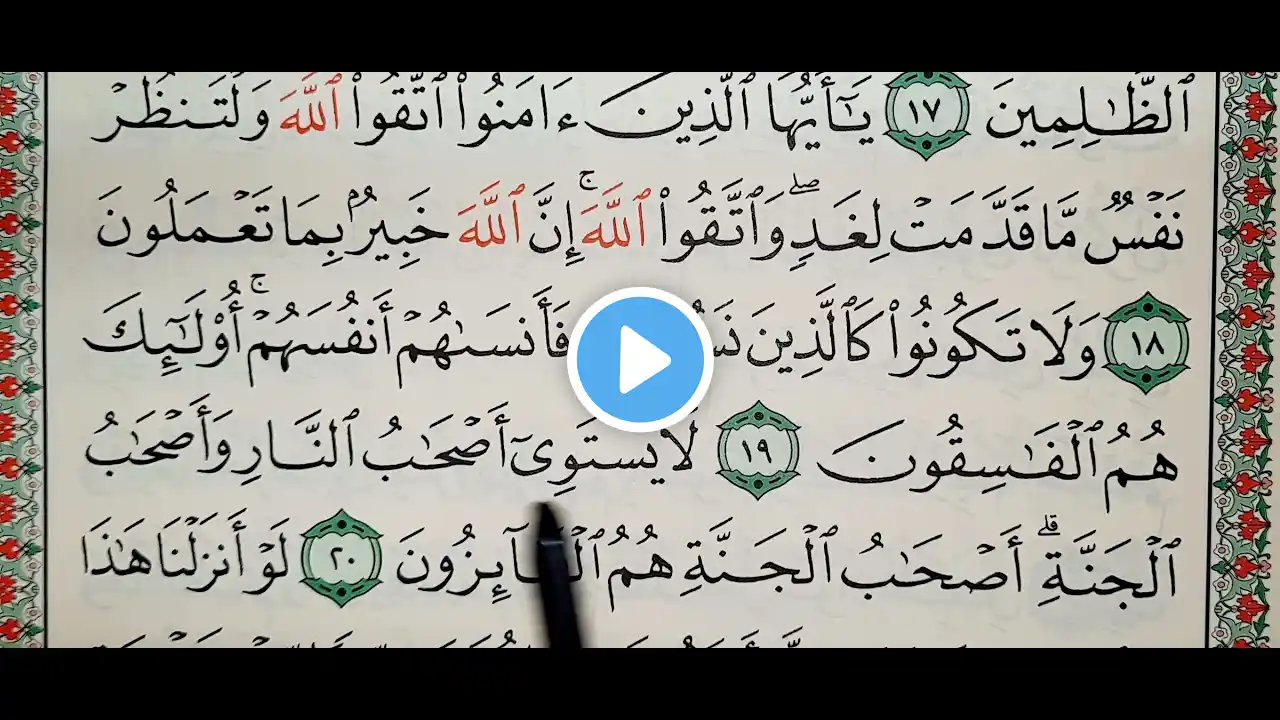 ٱلظَّٰلِمِينَ ١٧ يَٰٓأَيُّهَا ٱلَّذِينَ ءَامَنُوا۟ ٱتَّقُوا۟ ٱللَّهَ وَلْتَنظُرْ
نَفْسٌ مَّا قَدَّمَتْ لِغَدٍ ۖ وَٱتَّقُوا۟ ٱللَّهَ ۚ إِنَّ ٱللَّهَ خَبِيرٌۢ بِمَا تَعْمَلُونَ
١٨ وَلَا تَكُونُوا۟ كَٱلَّذِينَ فَأَنسَىٰهُمْ أَنفُسَهُمْ ۚ أُو۟لَٰٓئِكَ
هُمُ ٱلْفَٰسِقُونَ ١٩ لَا يَسْتَوِىٓ أَصْحَٰبُ ٱلنَّارِ وَأَصْحَٰبُ
ٱلْجَنَّةِ ۚ أَصْحَٰبُ ٱلْجَنَّةِ هُمُ ٱلْفَآئِزُونَ ٢٠ لَوْ أَنزَلْنَا هَٰذَا